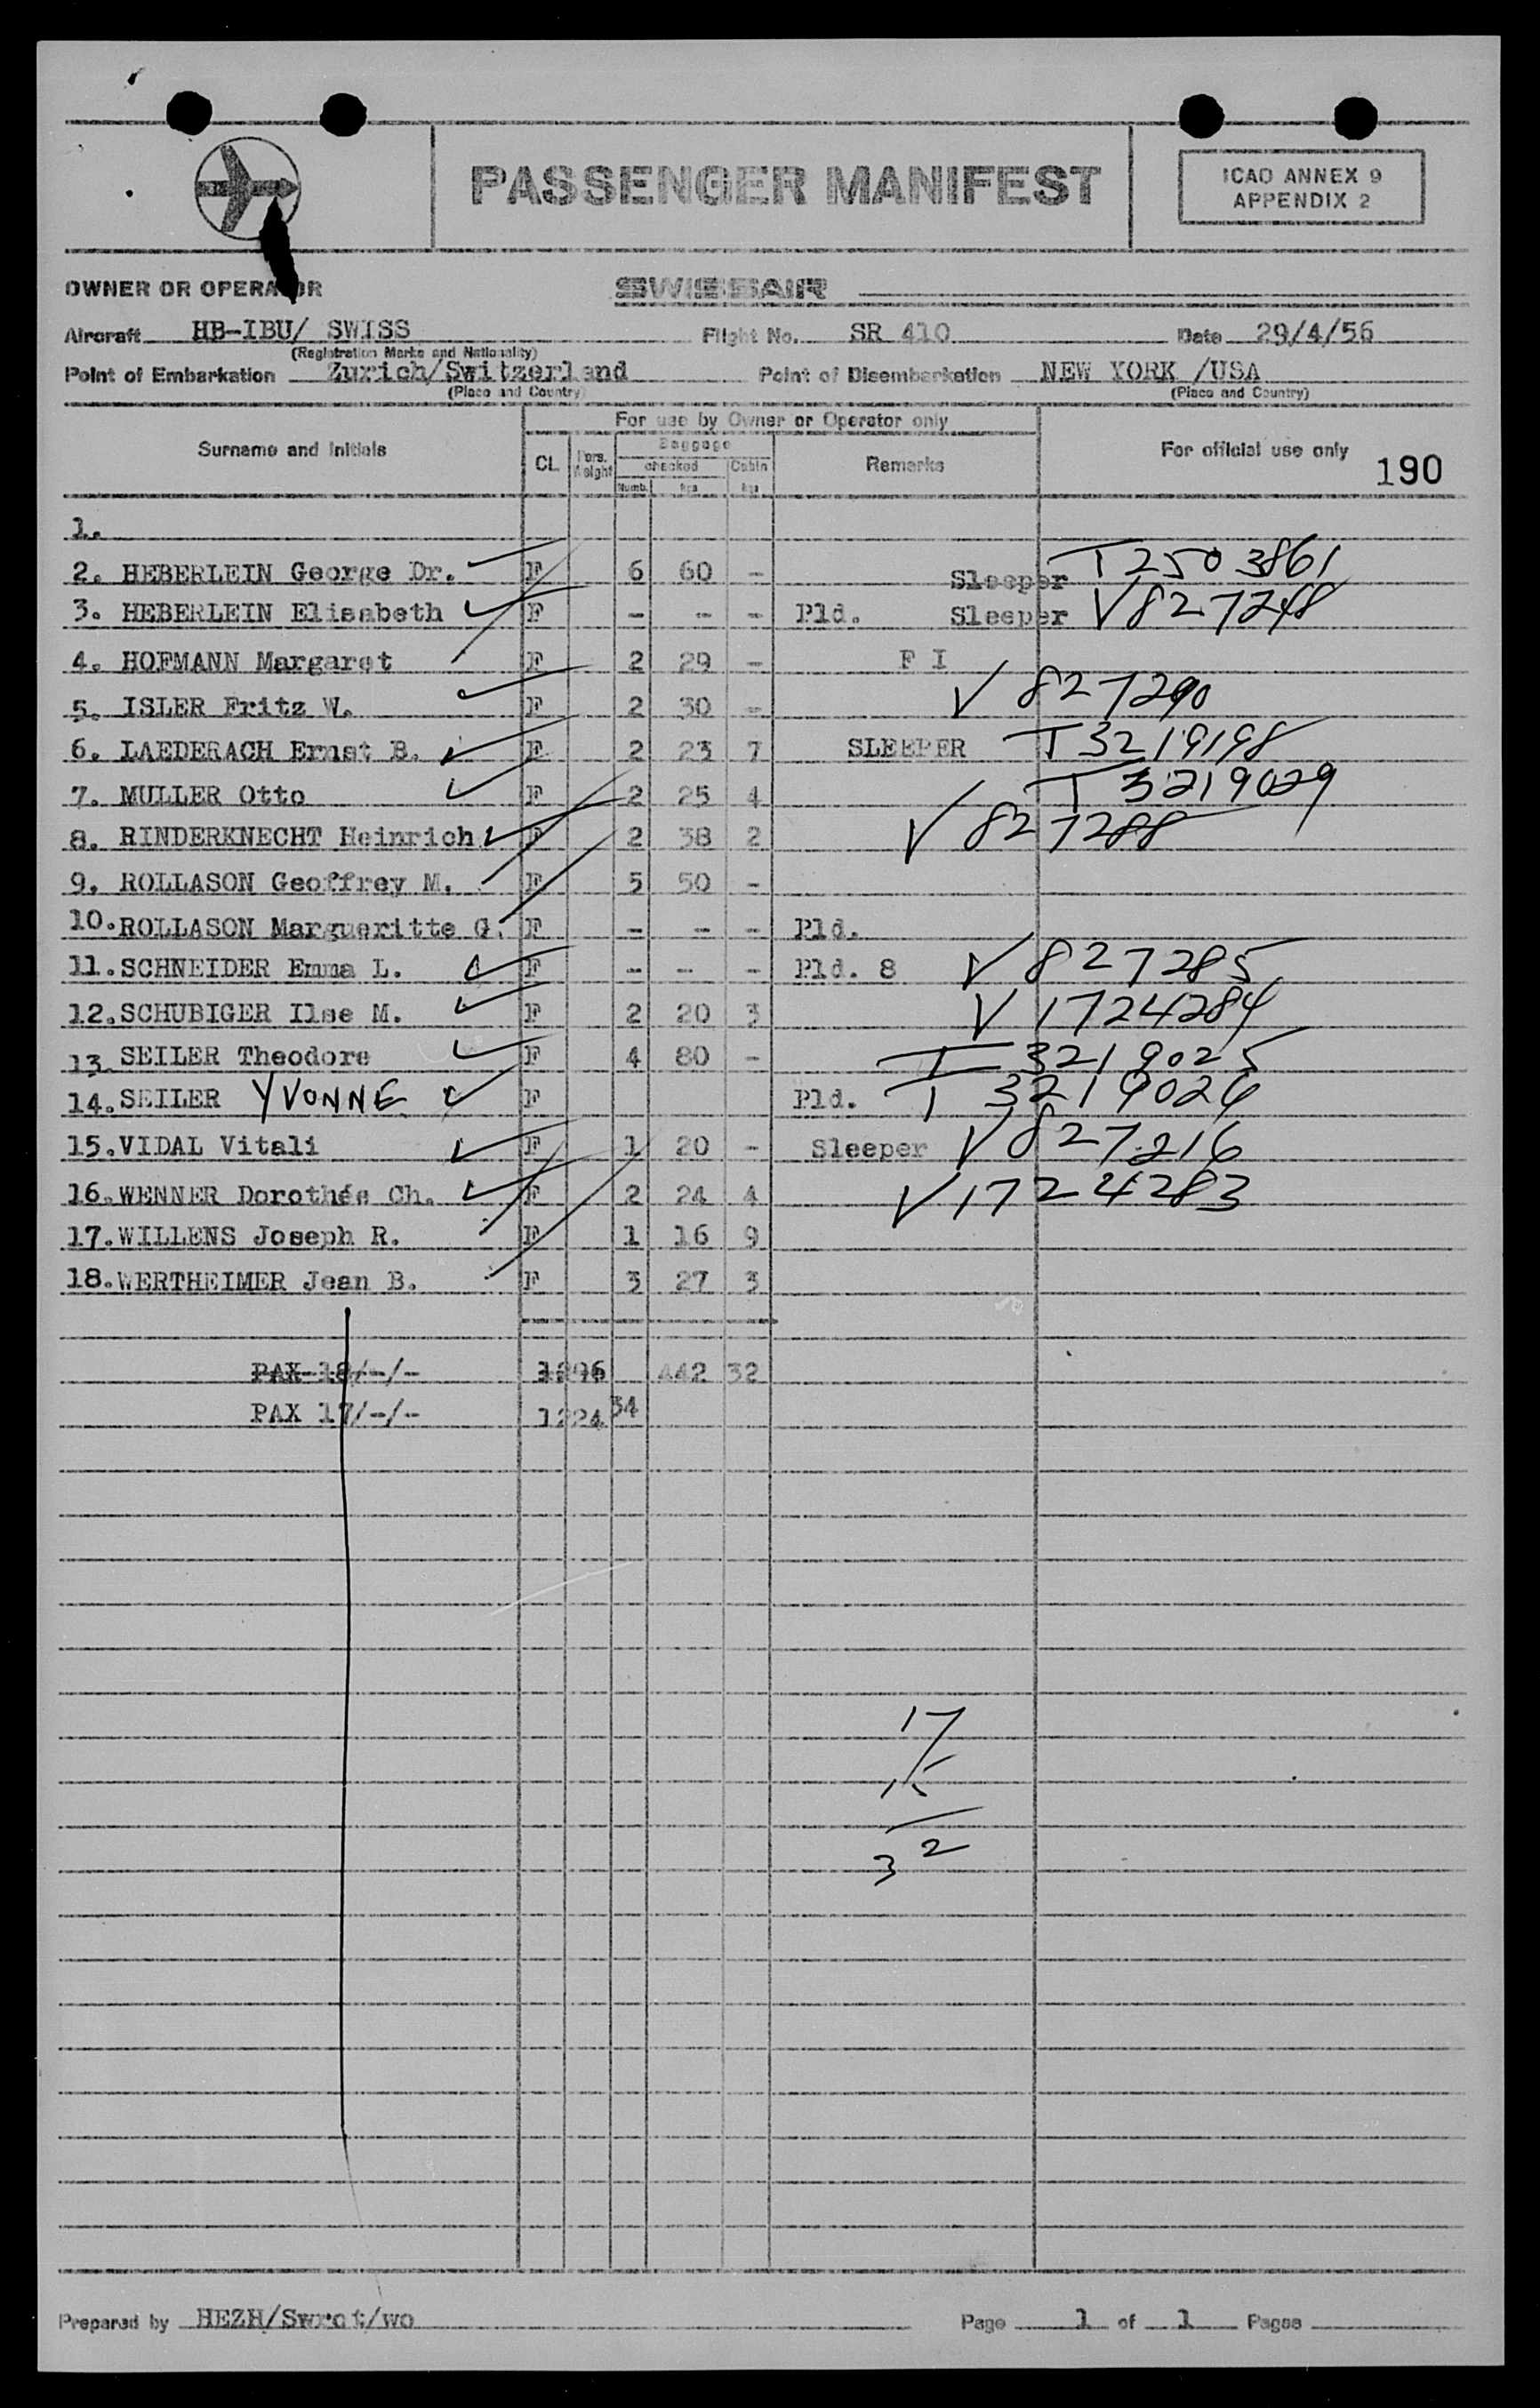 PASSENGER MANIFEST
ICAO ANNEX 9
APPENDIX 2
OWNER OR OPERATOR SWISSAIR
Aircraft HB-IBU/ SWISS Flight No. SR 410 Date 29/4/56
(Registration Marks and Nationality)
Point of Embarkation Zurich/Switzerland Point of Disembarkation NEW YORK /USA
(Place and Country) (Place and Country)
For use by Owner or Operator only
Surname and Initials CL Pers. Weight Baggage checked Numb. kgs Cabin kgs Remarks For official use only 190
1.
2. HEBERLEIN George Dr. F 6 60 - Sleeper T2503861
3. HEBERLEIN Elisabeth F - - - Pld. Sleeper V827248
4. HOFMANN Margaret F 2 29 - F I
5. ISLER Fritz W. F 2 30 - V 827290
6. LAEDERACH Ernst B. F 2 23 7 SLEEPER T3219198
7. MULLER Otto F 2 25 4 T 3219029
8. RINDERKNECHT Heinrich F 2 38 2 V 827288
9. ROLLASON Geoffrey M. F 5 50 -
10. ROLLASON Margueritte G. F - - - Pld.
11. SCHNEIDER Emma L. F - - - Pld. 8 V 827285
12. SCHUBIGER Ilse M. F 2 20 3 V 1724284
13. SEILER Theodore F 4 80 - T 3219025
14. SEILER YVONNE F Pld. T 3219024
15. VIDAL Vitali F 1 20 - Sleeper V 827216
16. WENNER Dorothée Ch. F 2 24 4 V1724283
17. WILLENS Joseph R. F 1 16 9
18. WERTHEIMER Jean B. F 3 27 3
PAX 18/-/- 1296 442 32
PAX 17/-/- 1224 34
17
15
32
Prepared by HEZH/Swrot/wo Page 1 of 1 Pages